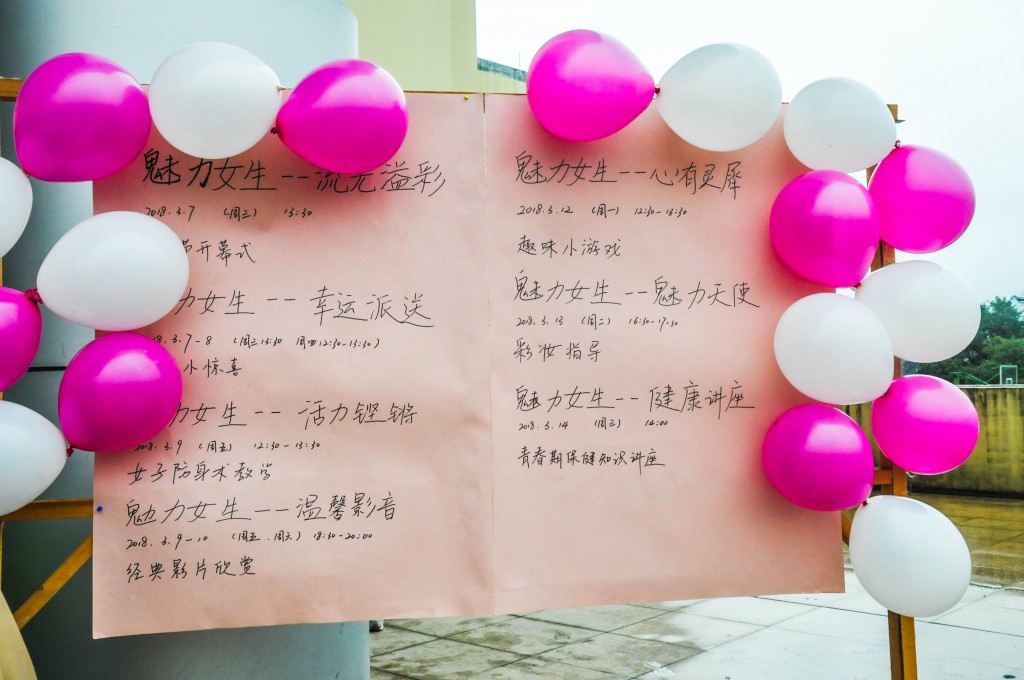 魅力女生--流光溢彩
2018.3.7 (周三) 13:30
节开幕式
力女生--幸运派送
.3.7-8 (周三13:30 周四12:30-13:30)
小惊喜
力女生--活力铿锵
2018.3.9 (周五) 12:30-13:30
女子防身术教学
魅力女生--温馨影音
2018.3.9-10 (周五、周六) 18:30-20:00
经典影片欣赏
魅力女生--心有灵犀
2018.3.12 (周一) 12:30-13:30
趣味小游戏
魅力女生--魅力天使
2018.3.13 (周二) 16:30-17:30
彩妆指导
魅力女生--健康讲座
2018.3.14 (周三) 14:00
青春期保健知识讲座